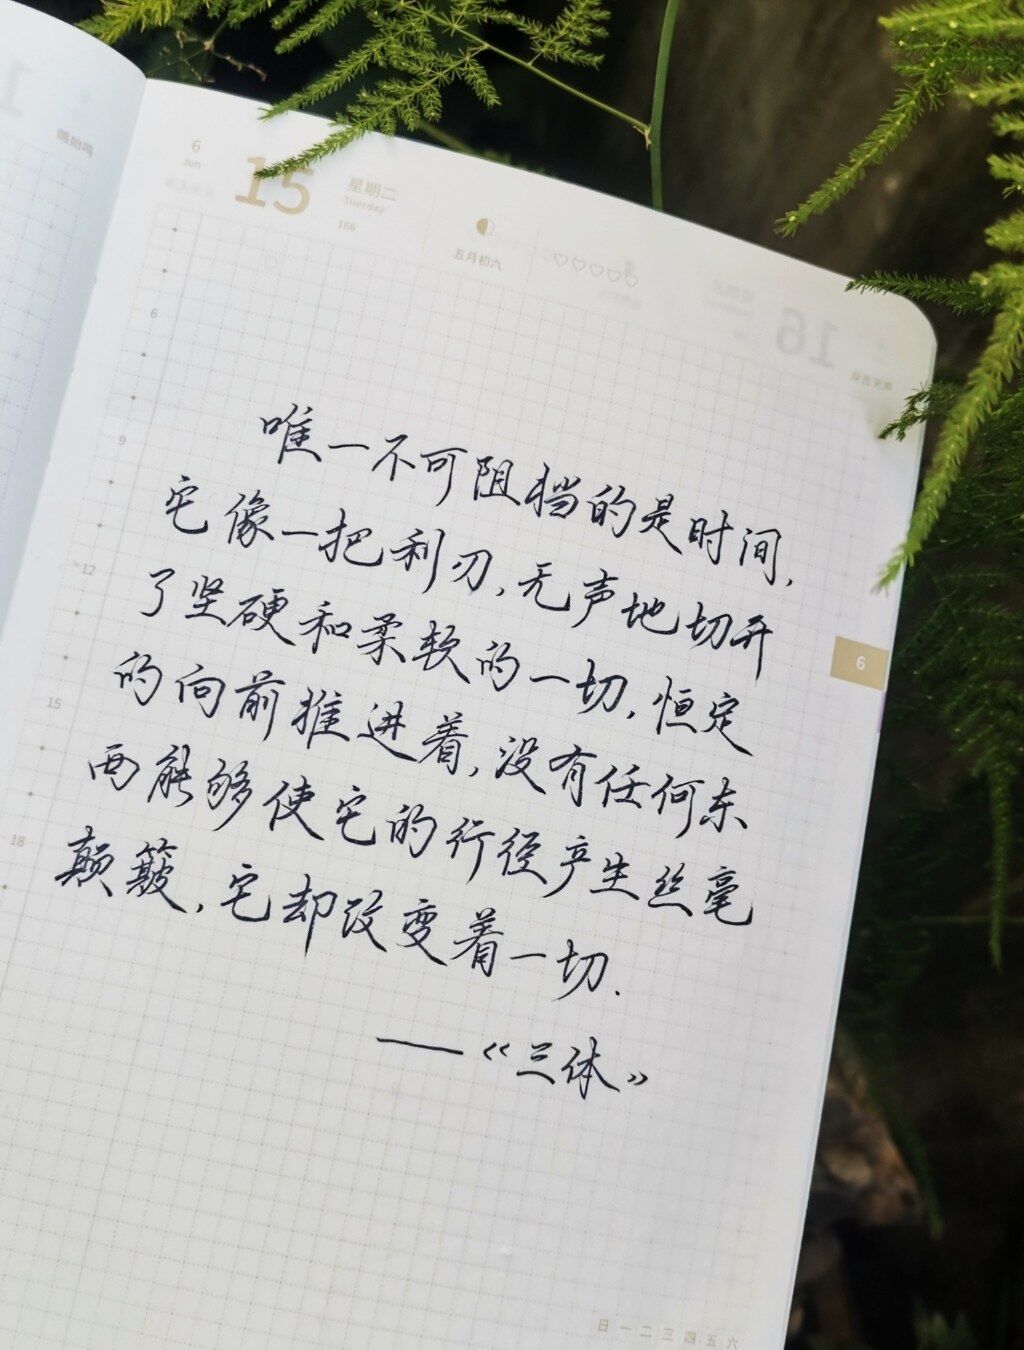 6
Jun
15
星期二
Tuesday
166
五月初六
6
9
12
15
18
唯一不可阻挡的是时间,
它像一把利刃,无声地切开
了坚硬和柔软的一切,恒定
的向前推进着,没有任何东
西能够使它的行径产生丝毫
颠簸,它却改变着一切.
——《三体》
6
日一二三四五六